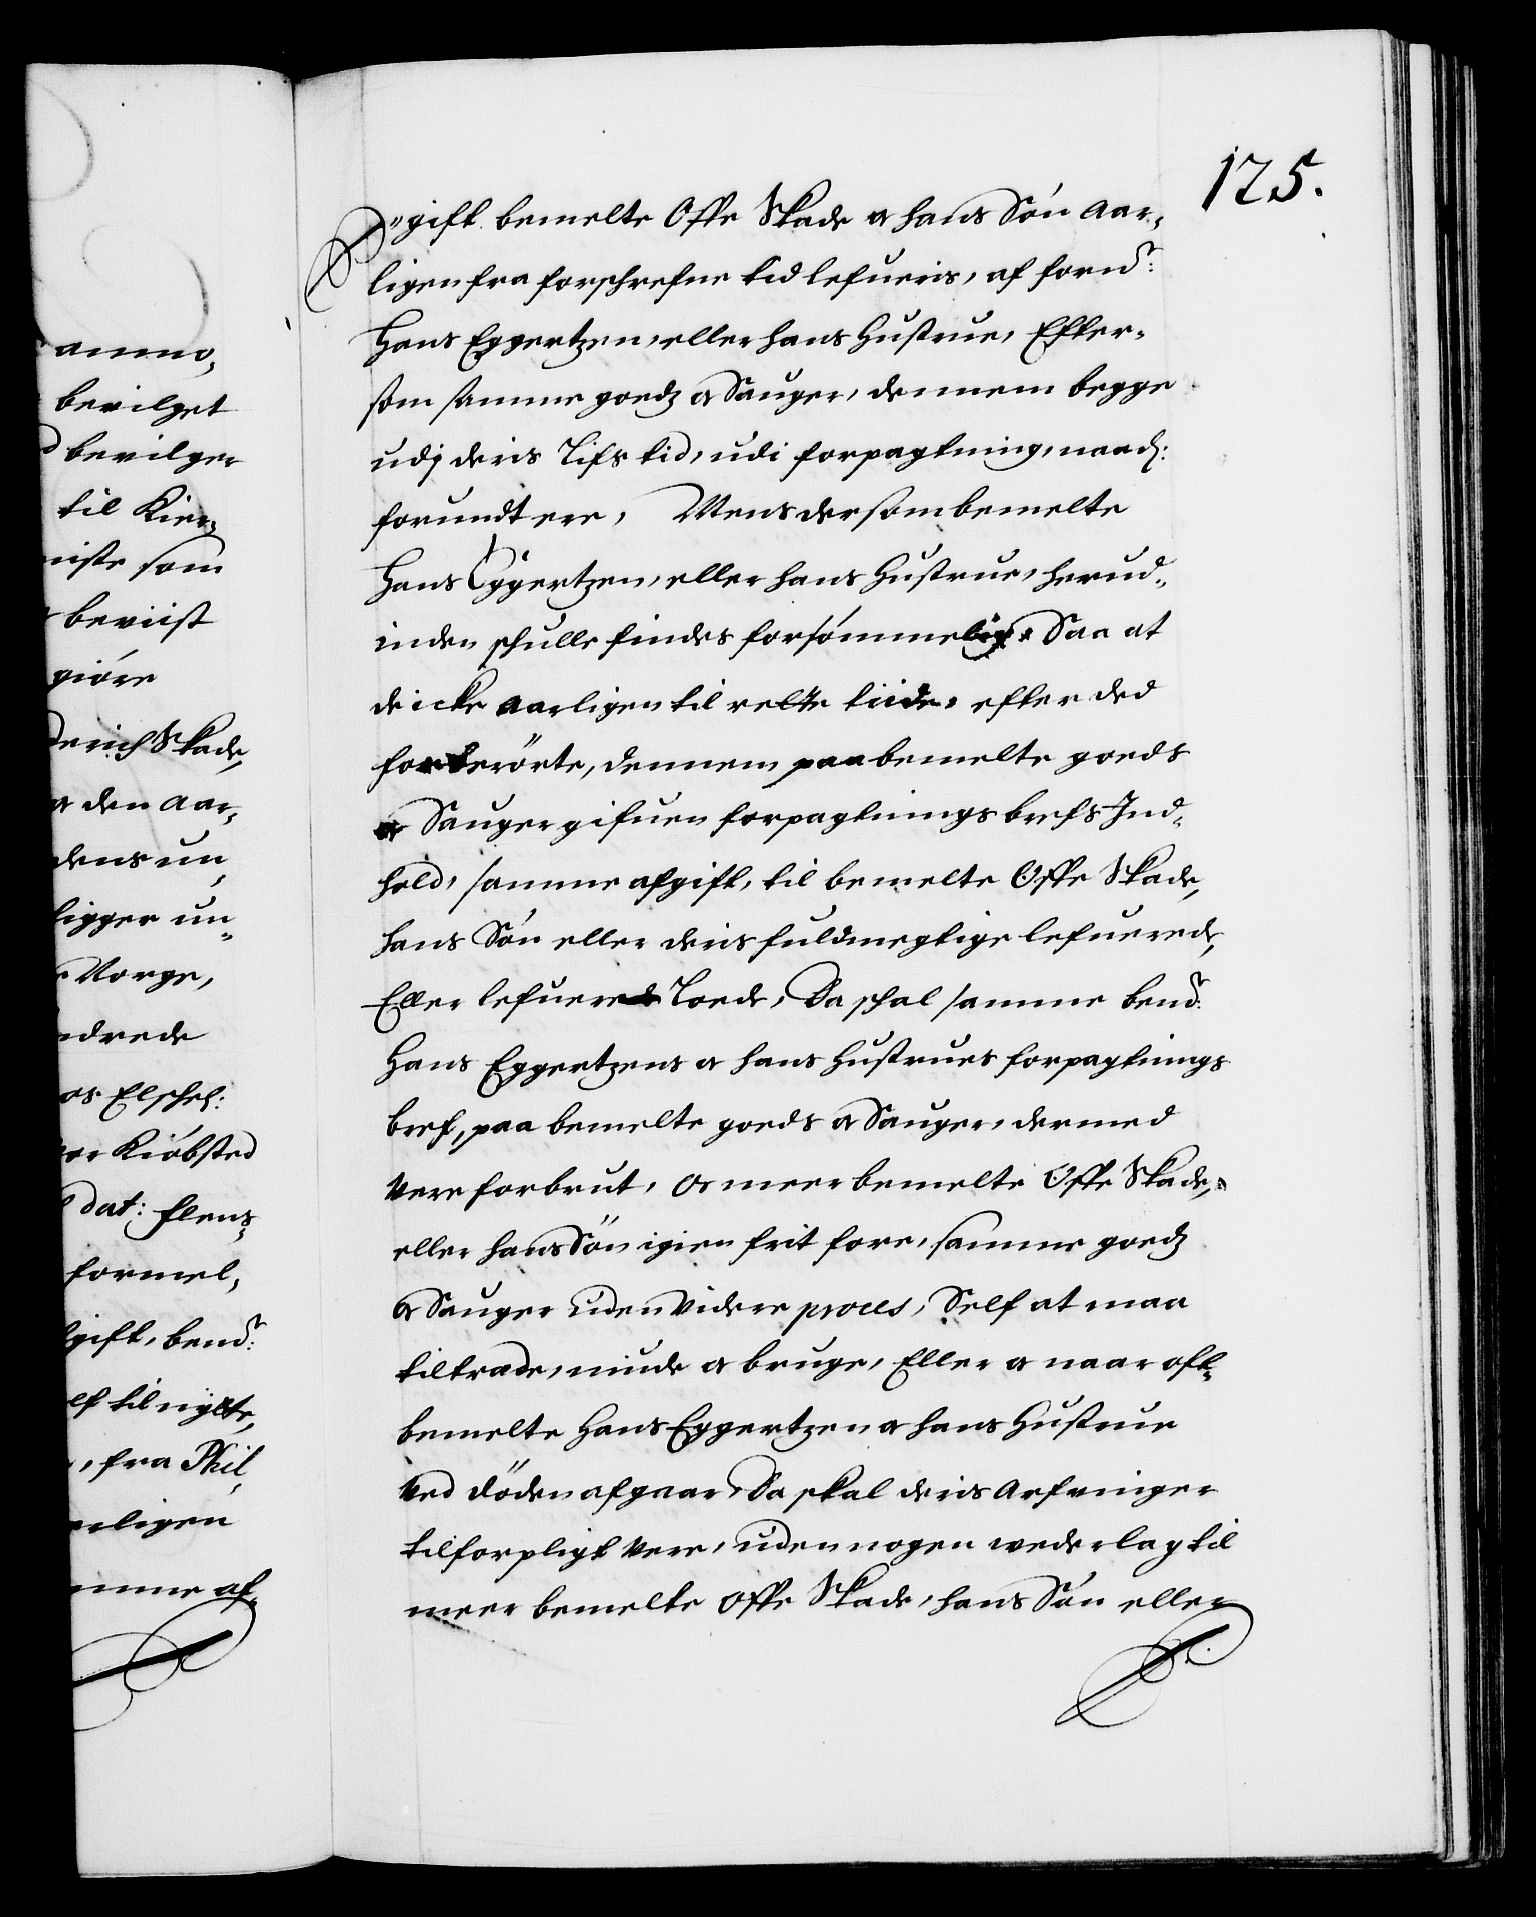 125.
"gift bemelte Offe Skade oc hans Søn aar,
ligen fra forschrefne tid lefueris, af fornd:
Hans Eggertzen, eller hans Hustrue, Efter,
som samme goedz oc Sauger, dennem begge
udj deris Lifs tid, udi forpagtning, naad:
forundt ere, Mens dersom bemelte
Hans Eggertzen, eller hans Hustrue, herud,
inden schulle findes forsømmelige Saa at
de icke aarligen til rette tiide, efter ded
forberörte, dennem paa bemelte goeds
oc Sauger gifuen forpagtnings brefs Ind,
hold, samme afgift, til bemelte Offe Skade,
hans Søn eller deris fuldmegtige lefuerede,
Eller lefuered Loede, Da schal samme bemd:
Hans Eggertzens oc hans Hustrues forpagtnings
bref, paa bemelte goeds oc Sauger, dermed
vere forbrut, Oc meerbemelte Offe Skade,
eller hans Sön igien frit fore, samme goedz
oc Sauger uden Videre proces, Self at maa
tiltræde, niude oc bruge, Eller oc naar oft,
bemelte Hans Eggertzen oc hans Hustrue
ved döden afgaar, Da skal deris Arfvinger
tilforpligt vere, uden nogen wederlag til
meer bemelte Offe Skade, hans Søn eller
anno,
bevilget
bevilger
til Kier,
niste som
beviist
giøre
derich Skade,
oc den Aar,
dens un,
ligger un,
Norge,
ndrede
os Elschel:
vor Kiøbsted
dat: flens,
formel,
gift, bemd:
elf til nytte,
, fra Phil,
erligen
mme af,